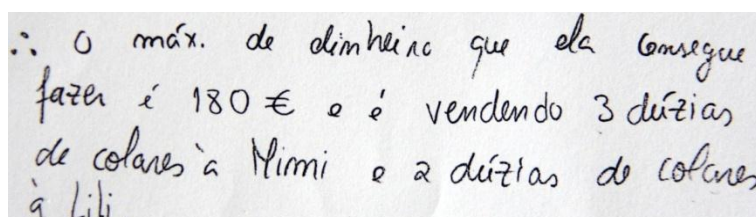 ∴ O máx. de dinheiro que ela consegue
fazer é 180 € e é vendendo 3 dúzias
de colares à Mimi e 2 dúzias de colares
à Lili